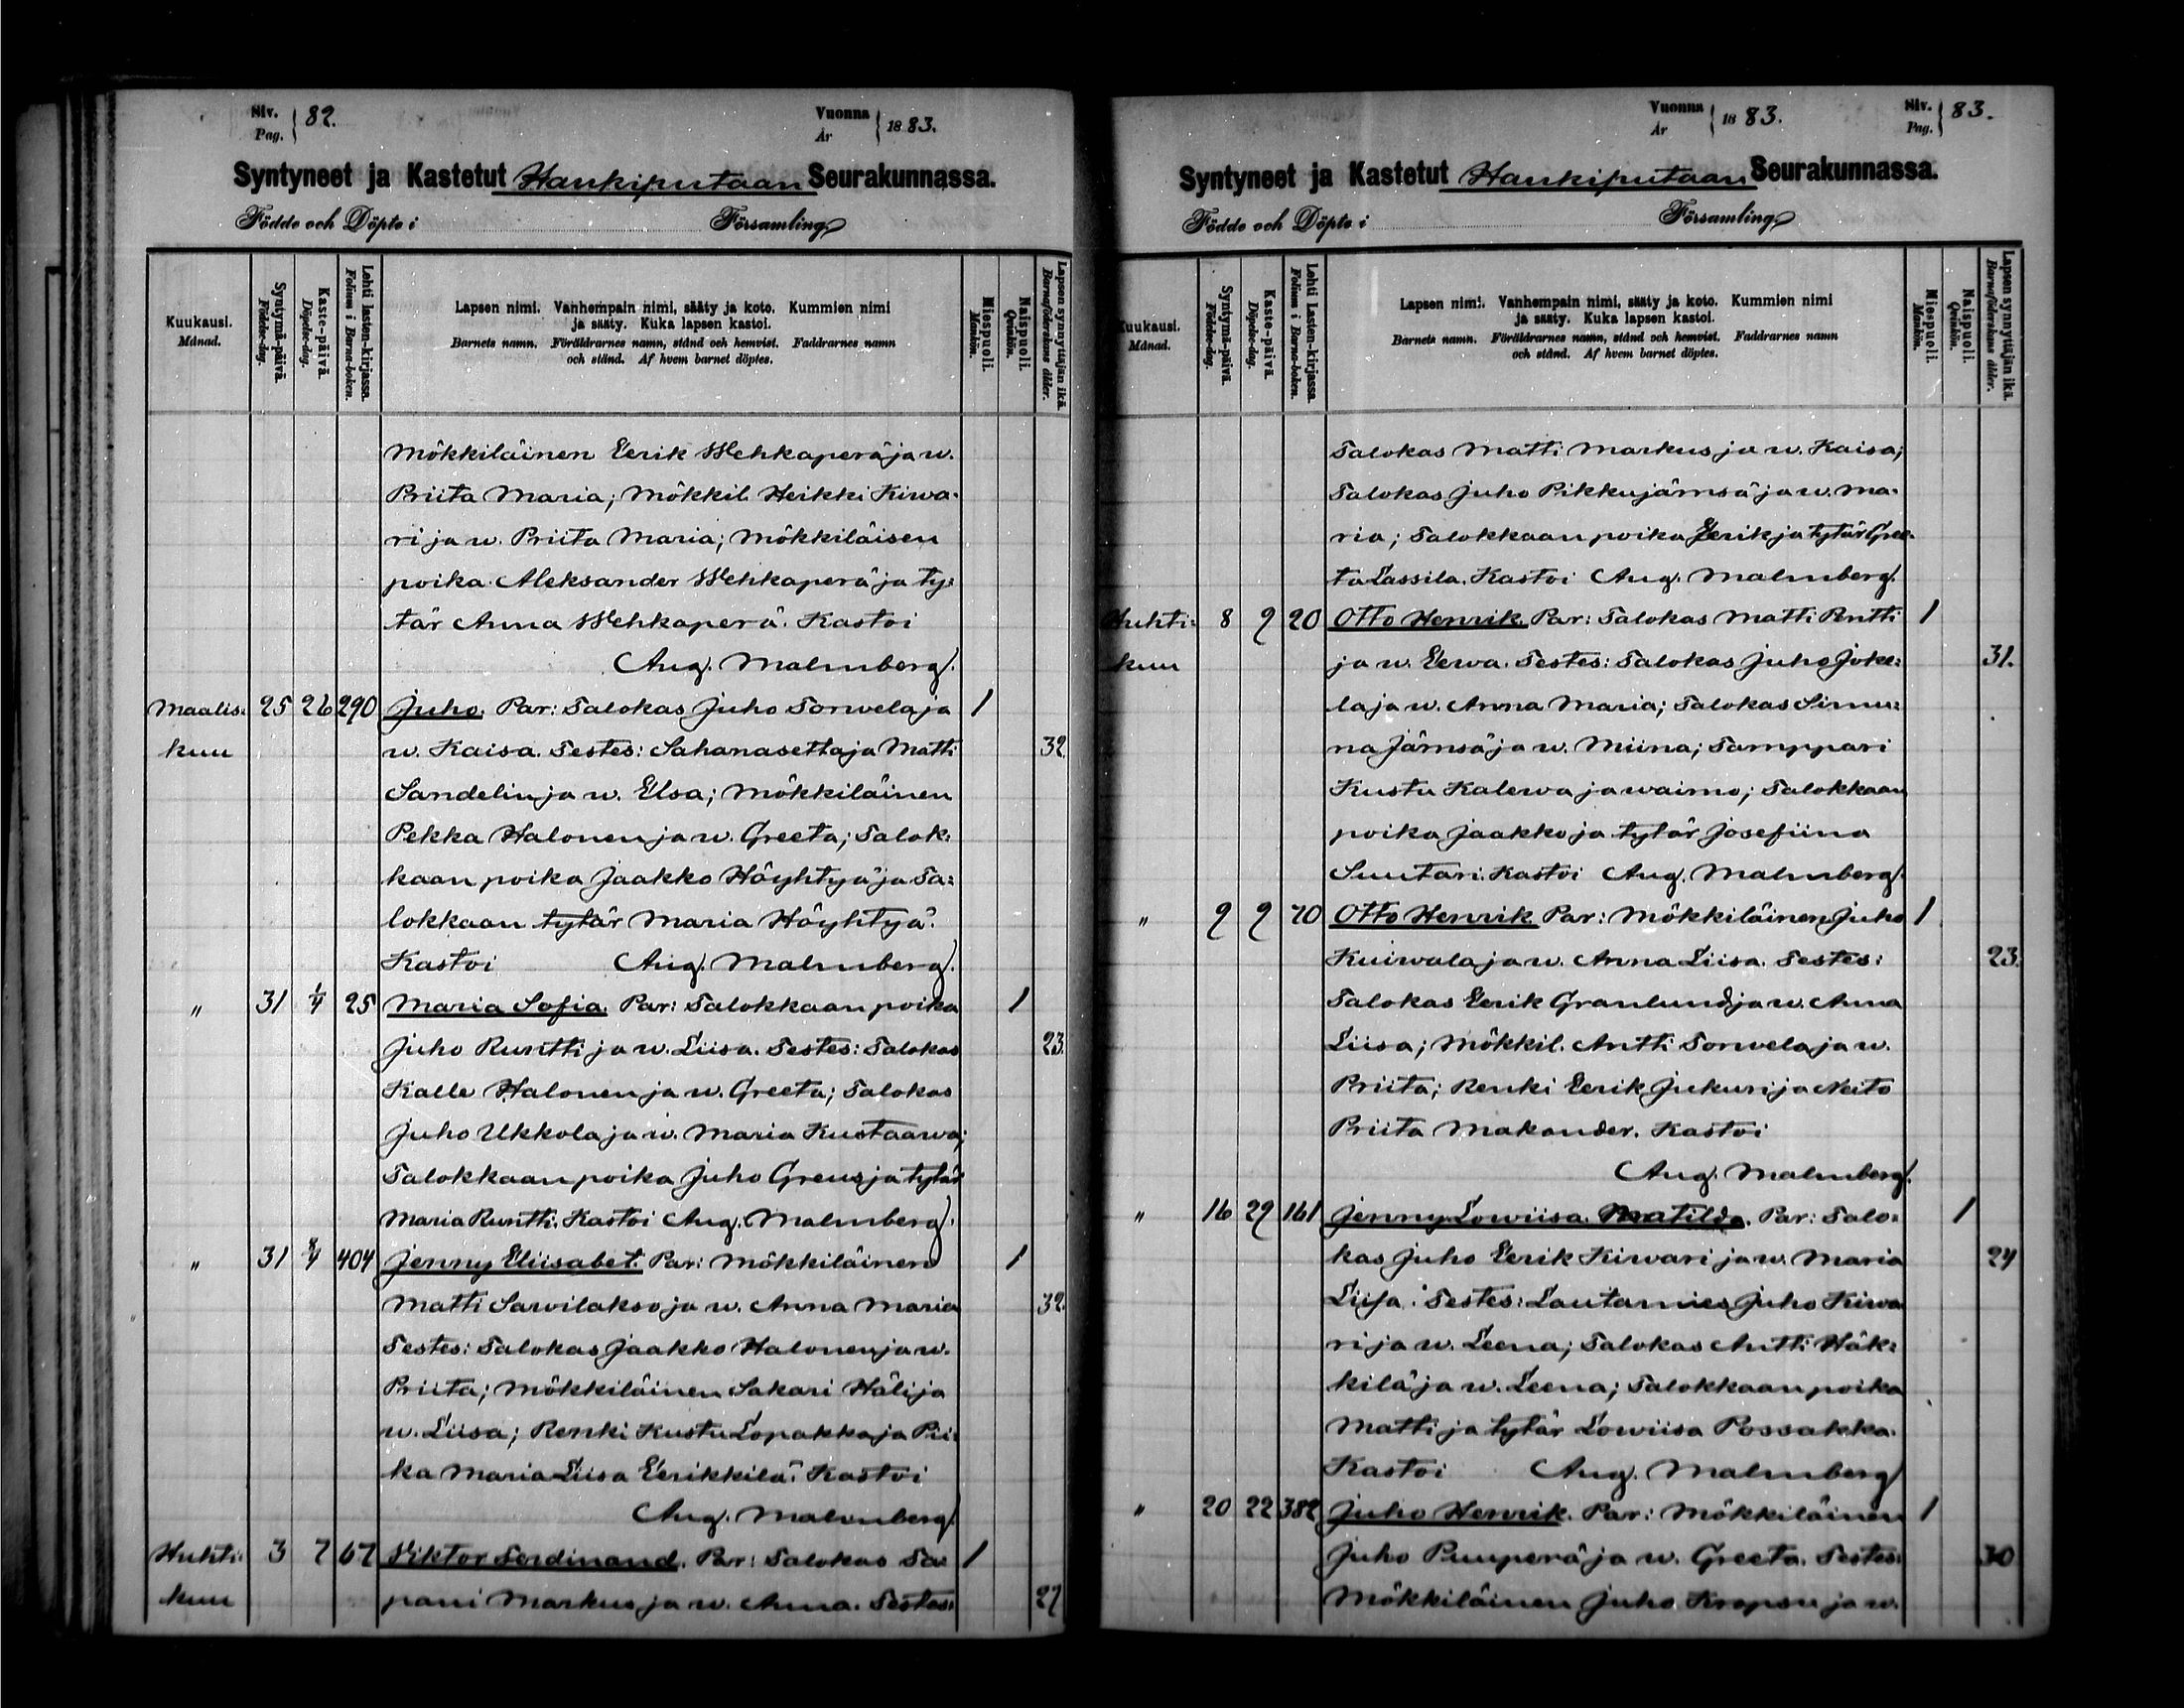 Siv. Pag. 82.
Vuonna År 1883.
Syntyneet ja Kastetut Haukiputaan Seurakunnassa.
Födde och Döpte i Församling
Kuukausi. Månad.
Syntymä-päivä. Födelse-dag.
Kaste-päivä. Döpelse-dag.
Lehti lasten-kirjassa. Folium i Barna-boken.
Lapsen nimi. Vanhempain nimi, sääty ja koto. Kummien nimi
ja sääty. Kuka lapsen kastoi.
Barnets namn. Föräldrarnes namn, stånd och hemvist. Faddrarnes namn
och stånd. Af hvem barnet döptes.
Miespuoli. Mankön.
Naispuoli. Qvinkön.
Lapsen synnyttäjän ikä. Barnaföderskans ålder.
Mökkiläinen Eerik Wehkaperä ja w.
Priita Maria; Mökkil. Heikki Kiwa-
ri ja w. Priita Maria; Mökkiläisen
poika Aleksander Wehkaperä ja ty-
tär Anna Wehkaperä. Kastoi
Aug. Malmberg.
Maalis- 25 26 290 Juho. Par: Talokas Juho Torwela ja 1
kuu w. Kaisa. Testes: Sahanasettaja Matti 32.
Sandelin ja w. Elsa; Mökkiläinen
Pekka Halonen ja w. Greeta; Talok-
kaan poika Jaakko Höyhtyä ja Ta-
lokkaan tytär Maria Höyhtyä.
Kastoi Aug. Malmberg.
" 31 1/4 25 Maria Sofia. Par: Talokkaan poika 1
Juho Runtti ja w. Liisa. Testes: Talokas 23.
Kalle Halonen ja w. Greeta; Talokas
Juho Ukkola ja w. Maria Kustaawa;
Talokkaan poika Juho Greus ja tytär
Maria Runtti. Kastoi Aug. Malmberg.
" 31 8/4 404 Jenny Eliisabet. Par: Mökkiläinen 1
Matti Sawilakso ja w. Anna Maria 32.
Testes: Talokas Jaakko Halonen ja w.
Priita; Mökkiläinen Sakari Häli ja
w. Liisa; Renki Kustu Lopakka ja Pii-
ka Maria Liisa Eerikkilä. Kastoi
Aug. Malmberg.
Huhti- 3 7 67 Viktor Ferdinand. Par: Talokas Ta- 1
kuu pani Markus ja w. Anna. Testes: 27
Vuonna År 1883.
Siv. Pag. 83.
Syntyneet ja Kastetut Haukiputaan Seurakunnassa.
Födde och Döpte i Församling
Kuukausi. Månad.
Syntymä-päivä. Födelse-dag.
Kaste-päivä. Döpelse-dag.
Lehti Lasten-kirjassa. Folium i Barna-boken.
Lapsen nimi. Vanhempain nimi, sääty ja koto. Kummien nimi
ja sääty. Kuka lapsen kastoi.
Barnets namn. Föräldrarnes namn, stånd och hemvist. Faddrarnes namn
och stånd. Af hvem barnet döptes.
Miespuoli. Mankön.
Naispuoli. Qvinkön.
Lapsen synnyttäjän ikä. Barnaföderskans ålder.
Talokas Matti Markus ja w. Kaisa;
Talokas Juho Pikkujämsä ja w. Ma-
ria; Talokkaan poika Eerik ja tytär Gree-
ta Lassila. Kastoi Aug. Malmberg.
Huhti- 8 9 20 Otto Henrik. Par: Talokas Matti Pentti 1
kuu ja w. Eewa. Testes: Talokas Juho Joke- 31.
la ja w. Anna Maria; Talokas Simu-
na Jämsä ja w. Miina; Tamppari
Kustu Kalewa ja waimo; Talokkaan
poika Jaakko ja tytär Josefiina
Suutari. Kastoi Aug. Malmberg.
" 9 9 70 Otto Henrik. Par: Mökkiläinen Juho 1
Kuiwala ja w. Anna Liisa. Testes: 23.
Talokas Eerik Granlund ja w. Anna
Liisa; Mökkil. Antti Torwela ja w.
Priita; Renki Eerik Jukuri ja Neito
Priita Makander. Kastoi
Aug. Malmberg.
" 16 29 161 Jenny Lowiisa Matilda. Par: Talo- 1
kas Juho Eerik Kiwari ja w. Maria 24
Liisa. Testes: Lautamies Juho Kiwa
ri ja w. Leena; Talokas Antti Häk-
kilä ja w. Leena; Talokkaan poika
Matti ja tytär Lowiisa Possakka.
Kastoi Aug. Malmberg
" 20 22 382 Juho Henrik. Par: Mökkiläinen 1
Juho Puuperä ja w. Greeta. Testes: 30
Mökkiläinen Juho Kropsu ja w.